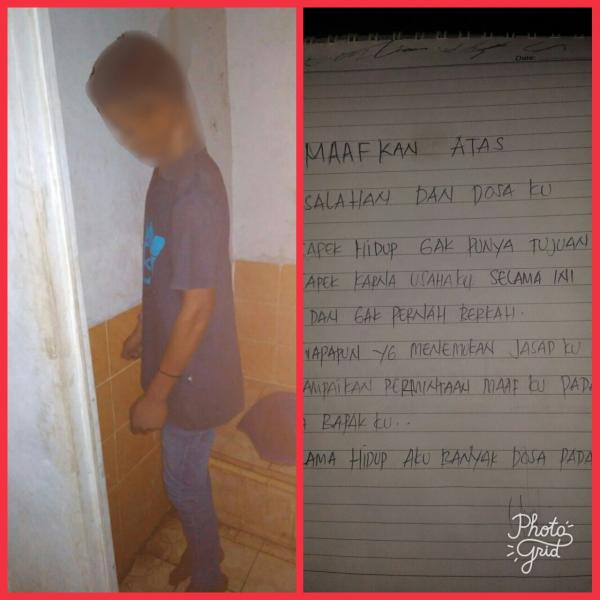 Date:
MAAFKAN ATAS
SALAHAN DAN DOSA KU
CAPEK HIDUP GAK PUNYA TUJUAN
CAPEK KARNA USAHAKU SELAMA INI
DAN GAK PERNAH BERKAH.
APAPUN YG MENEMUKAN JASAD KU
AMPAIKAN PERMINTAAN MAAF KU PADA
BAPAK KU..
AMA HIDUP AKU BANYAK DOSA PADA
Photo
Grid